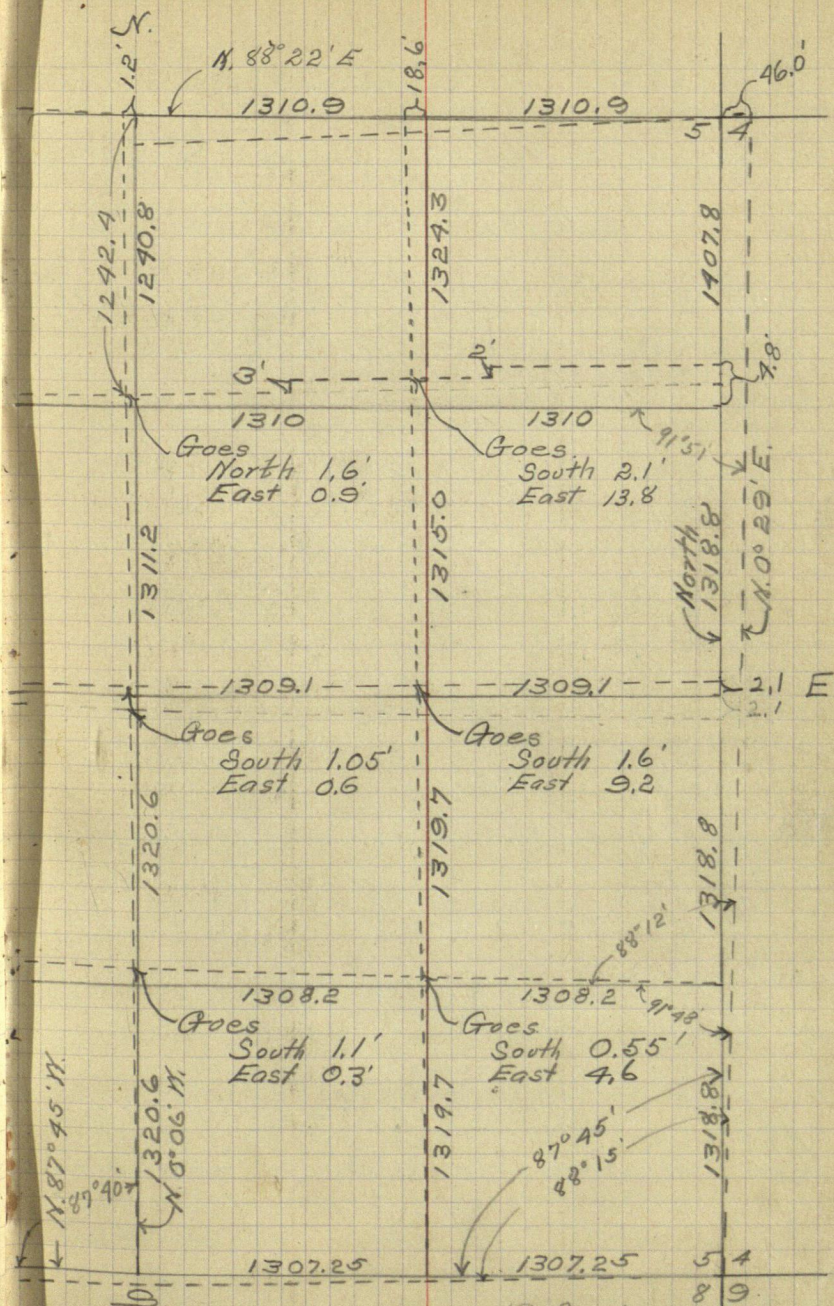 1.2' N.
N. 88° 22' E
18.6'
46.0'
1310.9
1310.9
5 4
1242.4
1240.8
1324.3
1407.8
3'
2'
7.8'
1310
1310
91° 51'
Goes
North 1.6'
East 0.9'
Goes
South 2.1'
East 13.8
1311.2
1315.0
North
1318.8
N. 0° 29' E.
1309.1
1309.1
2.1 E
2.1
Goes
South 1.05'
East 0.6
Goes
South 1.6'
East 9.2
1320.6
1319.7
1318.8
88° 12'
1308.2
1308.2
91° 48'
Goes
South 1.1'
East 0.3'
Goes
South 0.55'
East 4.6
N. 87° 45' W.
87° 40'
1320.6
N. 0° 06' W.
1319.7
87° 45'
88° 15'
1318.8
1307.25
1307.25
5 4
8 9